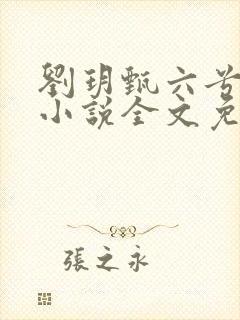 劉玥甄六兮
小說全文免
張之永